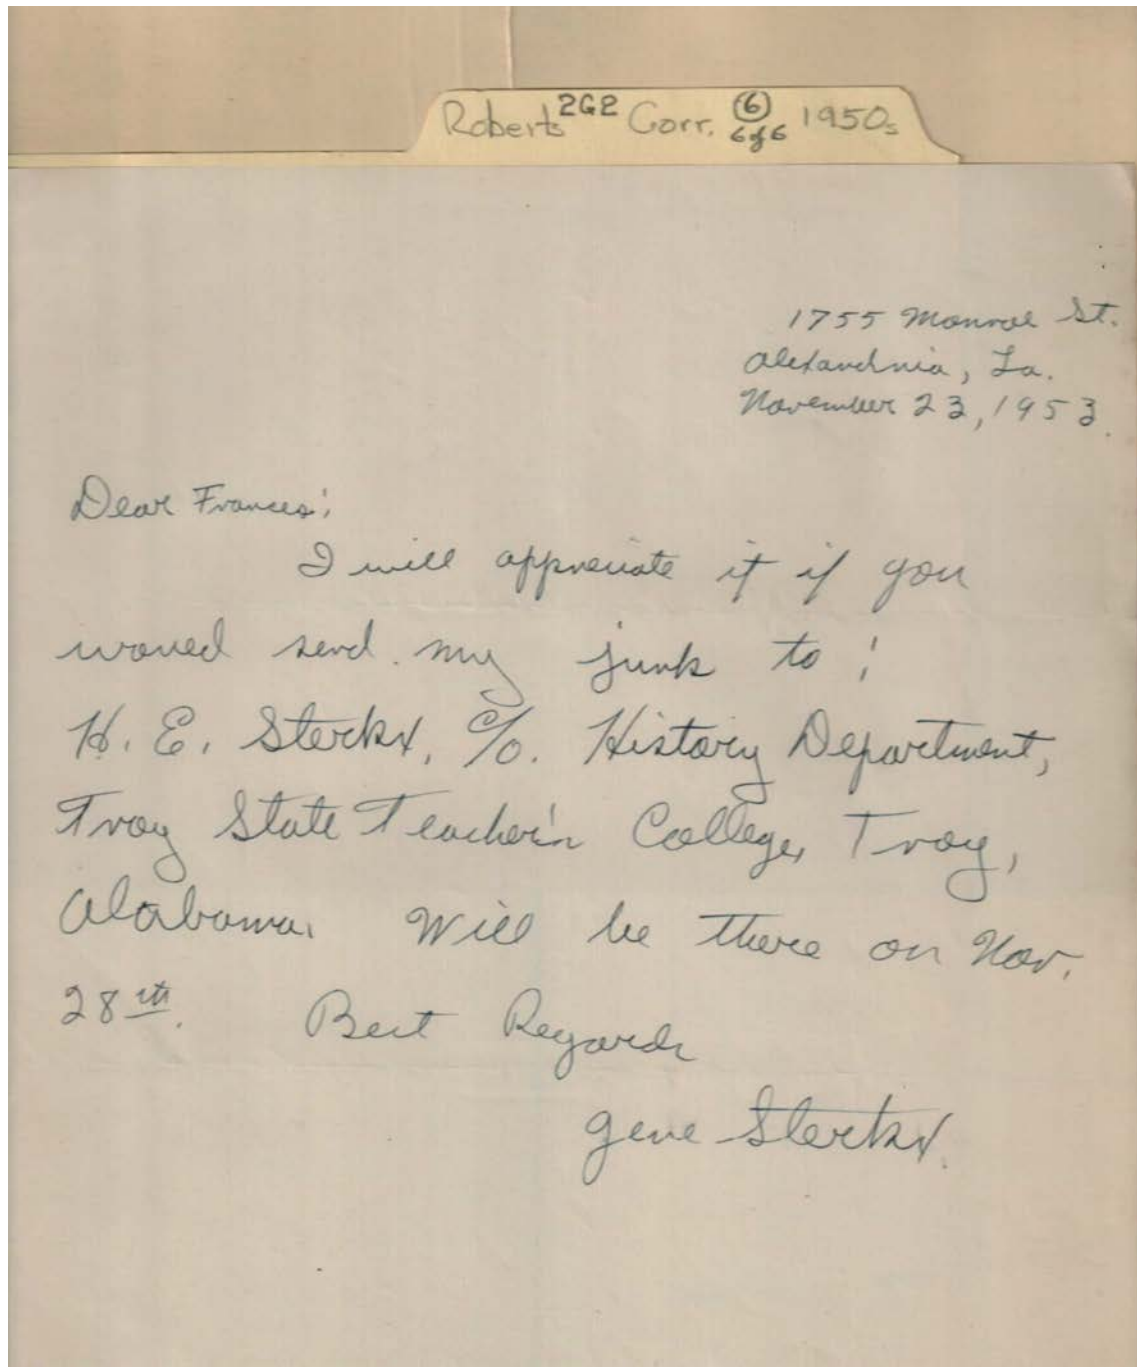 Roberts 2G2 Corr. 6 6of6 1950s
1755 Monroe St.
Alexandria, La.
November 23, 1953.
Dear Frances:
I will appreciate it if you
would send my junk to:
H. E. Sterkx, c/o. History Department,
Troy State Teacher's College, Troy,
Alabama. Will be there on Nov.
28th. Best Regards
Gene Sterkx.